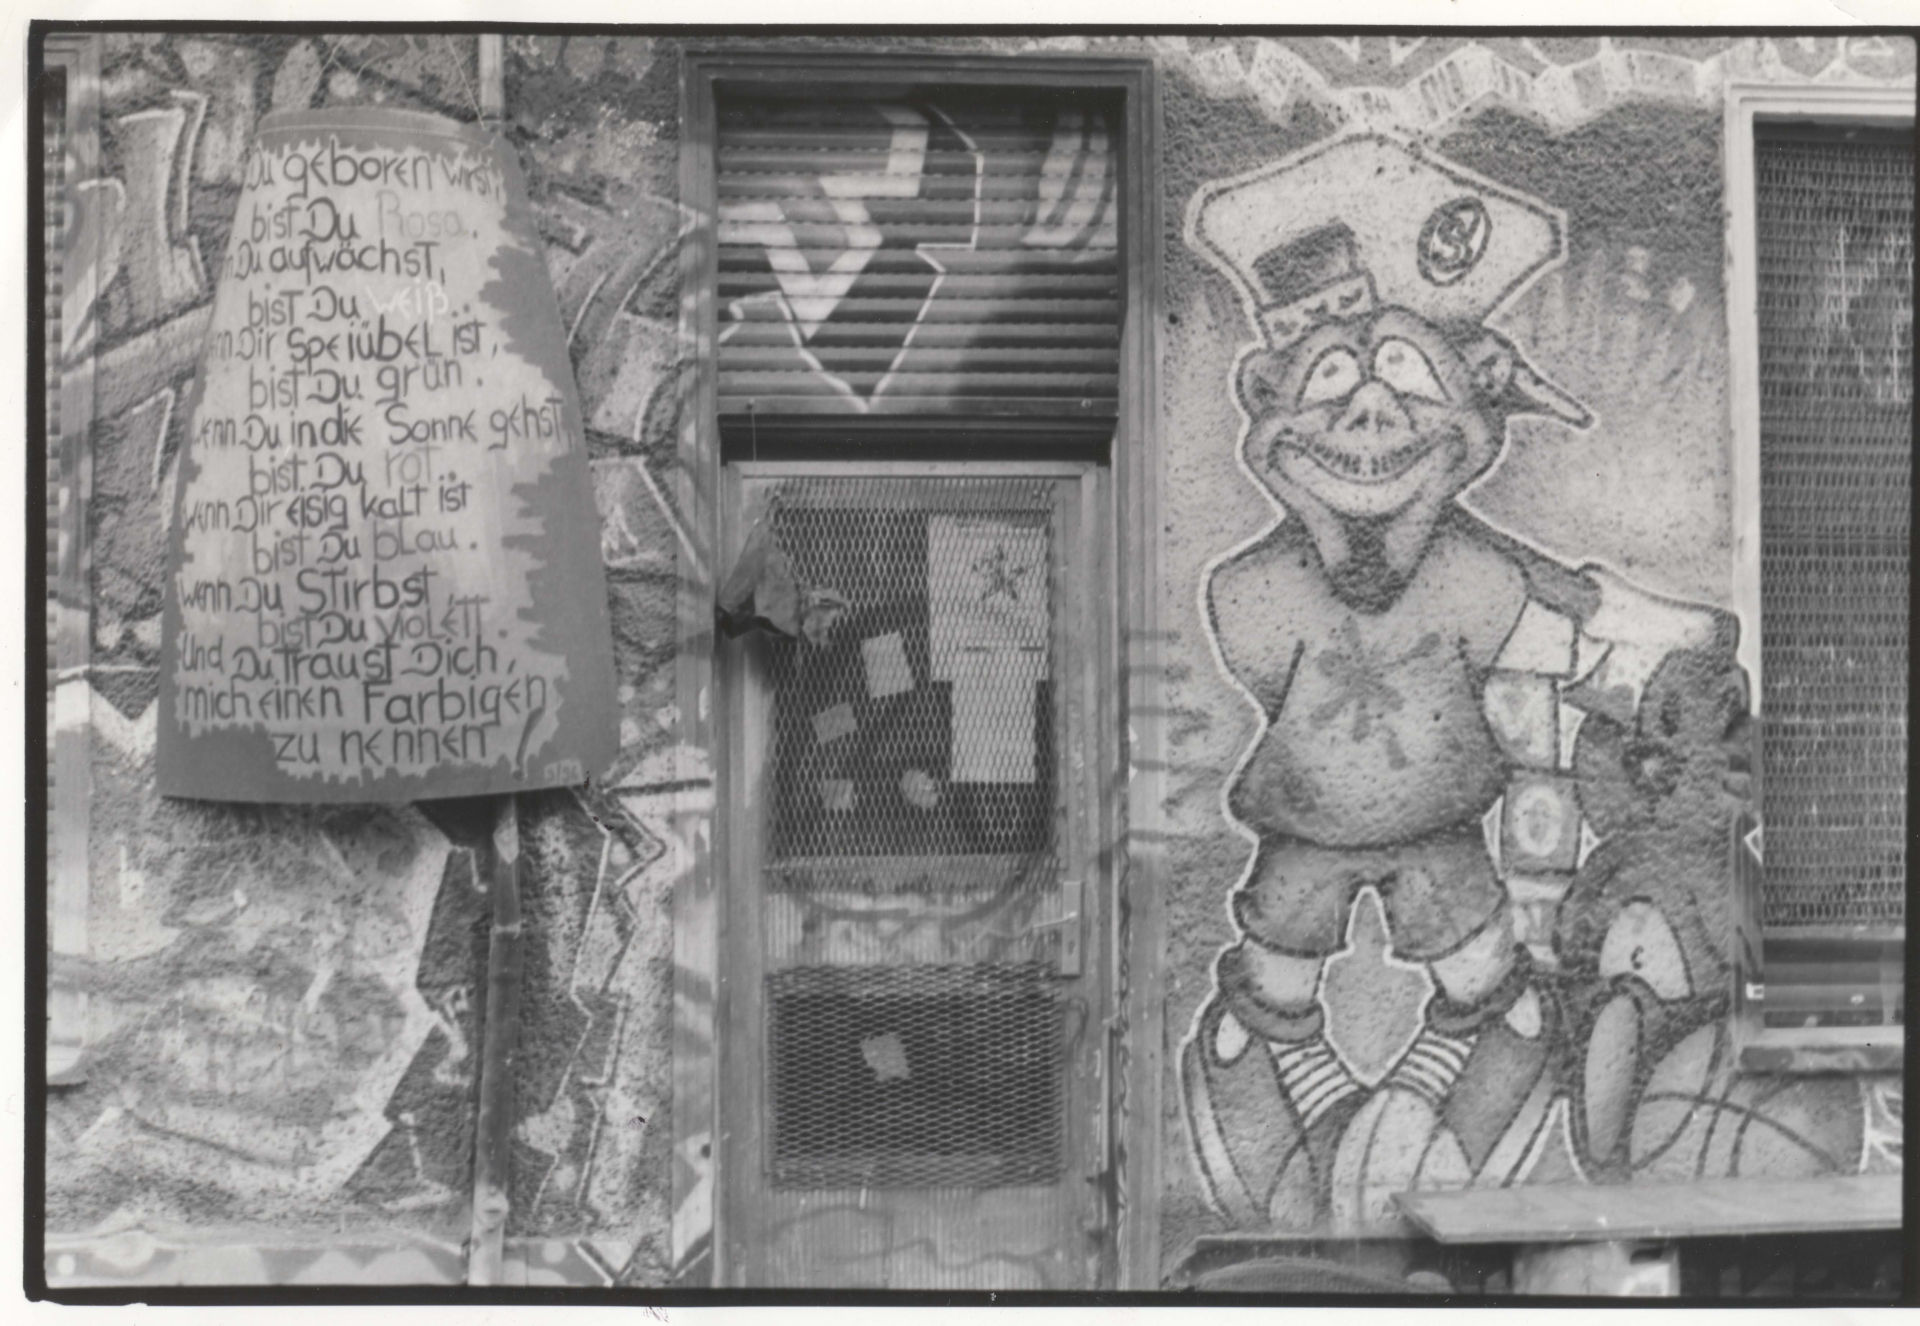 Du geboren wirst,
bist Du Rosa.
Du aufwächst,
bist Du weiß.
Dir speiübel ist,
bist Du grün.
wenn Du in die Sonne gehst,
bist Du rot
wenn Dir eisig kalt ist
bist Du blau.
wenn Du Stirbst,
bist Du violett.
Und Du traust Dich,
mich einen Farbigen
zu nennen!